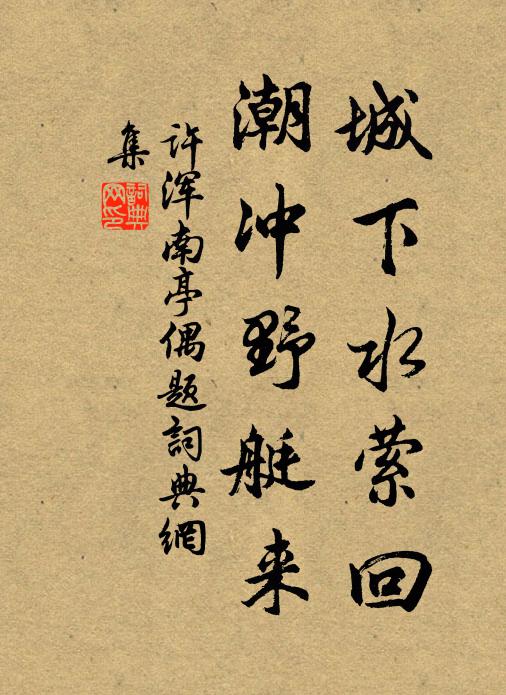 城下水萦回
潮冲野艇来
许浑南亭偶题詞典網
集
詞典
网印